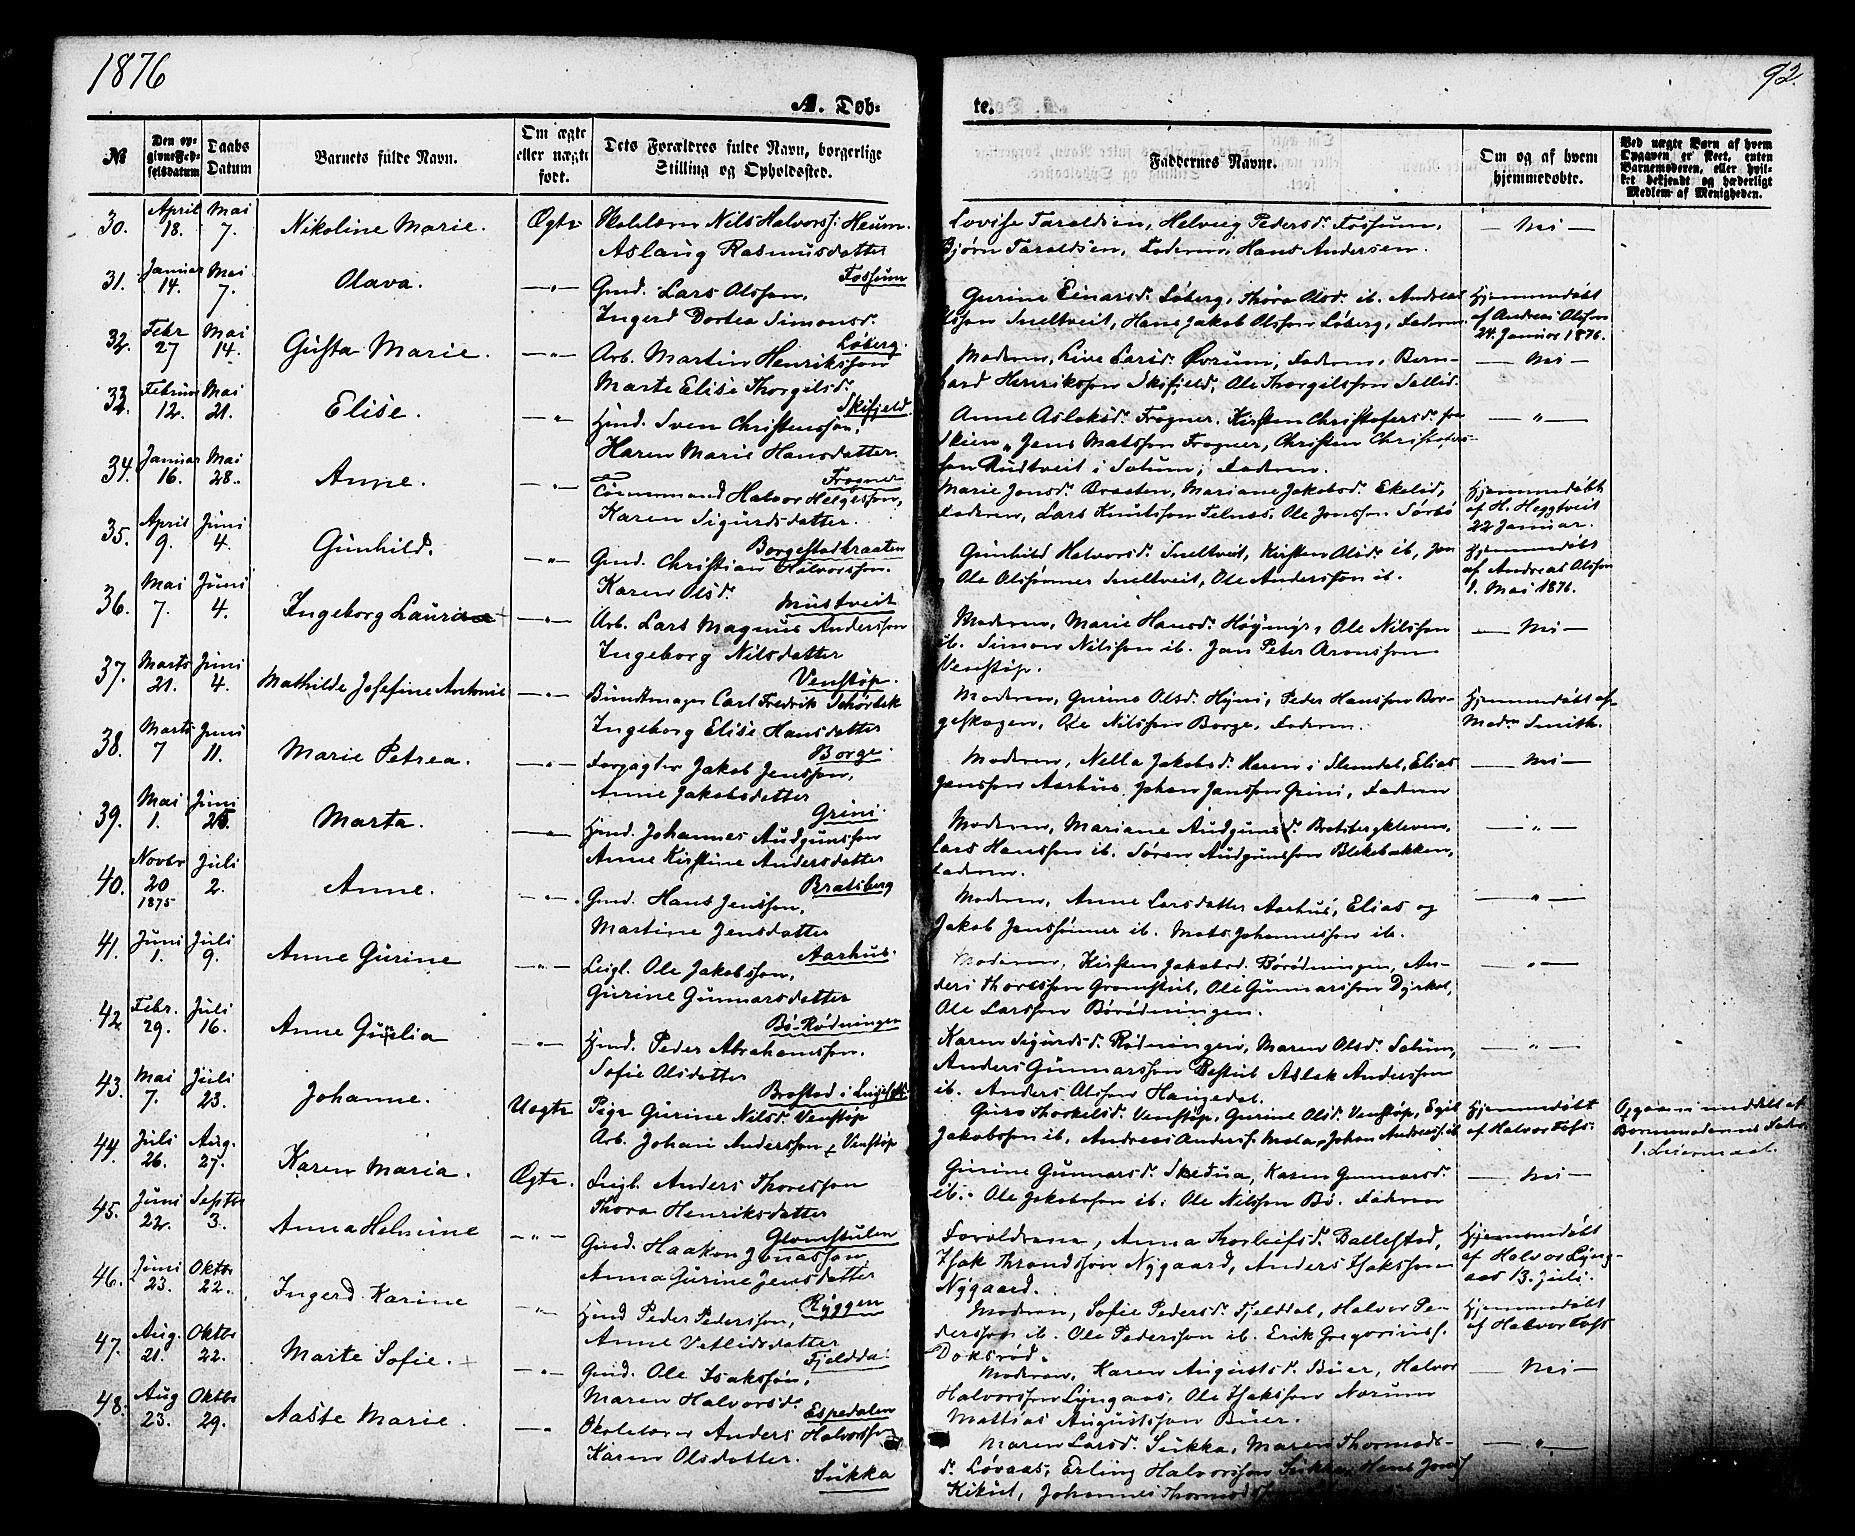 1876
92.
A. Døb-
te.
№
Den op-
givne Fød-
selsdatum
Daabs
Datum
Barnets fulde Navn.
Om ægte
eller uægte
født.
Dets Forældres fulde Navn, borgerlige
Stilling og Opholdssted.
Faddernes Navne.
Om og af hvem
hjemmedøbte.
Ved uægte Børn af hvem
Opgaven er skeet, enten
Barnemoderen, eller hvil-
ket bekjendt og hæderligt
Medlem af Menigheden.
30. April 18. Mai 7. Nikoline Marie. Ægte Skolelærer Nils Halvorss: Heum.
Aslaug Rasmusdatter
Fossum
Lovise Taraldsen, Helvig Pedersd. Fossum,
Bjørn Taraldsen, Faderen, Hans Andersen.
— Nei —
31. Januar 14. Mai 7. Olava. —"— Gmd. Lars Olsson,
Ingerd Dortea Simonsd.
Løberg.
Gurine Einarsd. Løberg, Thora Olsd. ib. Andreas
Olsson Sneltveit, Hans Jakob Olsson Løberg, Faderen.
Hjemmedøbt
af Andreas Olsson
24. Januar 1876.
32. Febr 27 Mai 14. Gusta Marie. —"— Arb. Martin Henriksson
Marte Elise Thorgilsd.
Skifjeld.
Moderen, Live Larsd. Øvrum, Faderen, Bern-
hard Henriksson Skifjeld, Ole Thorgilsson Sollid.
— Nei —
33. Februar 12. Mai 21. Elise. —"— Hmd. Sven Christensson,
Karen Marie Hansdatter.
Frogner
Anne Aslaksd. Frogner, Kirsten Christofersd. fra
Skien, Jens Matsson Frogner, Christen Christofers-
son Rustveit i Solum, Faderen.
—"—
34. Januar 16. Mai 28. Anne. —"— Tømmermand Halvor Helgesson,
Karen Sigurdsdatter.
Borgestadbraaten
Marie Jonsd. Braaten, Mariane Jakobsd. Ekelid,
Faderen, Lars Knutsson Felnes, Ole Jonsson Sørbø
Hjemmedøbt
af H. Heggtveit
22 Januar.
35. April 9. Juni 4. Gunhild. —"— Gmd. Christian Halvorsson.
Karen Olsd.
Mustveit
Gunhild Halvorsd. Sneltveit, Kirsten Olsd. ib, Jan
Ole Olsønner Sneltveit, Ole Andersson ib.
Hjemmedøbt
af Andreas Olsson
1. Mai 1876.
36. Mai 7. Juni 4. Ingeborg Laurine —"— Arb. Lars Magnus Andersson
Ingeborg Nilsdatter
Venstøp.
Moderen, Marie Hansd. Ole Nilsson
ib. Simon Nilsson ib. Jan Peter Aronsson
Venstøp.
— Nei —
37. Marts 21. Juni 4. Mathilde Josefine Antonie —"— Bundtmager Carl Fredrik
Ingeborg Elise Hansdatter
Borge.
Moderen, Gurine Olsd. Hyni, Peder Hansson Bor-
geskogen, Ole Nilsson Borge, Faderen.
Hjemmedøbt af
Madm Smith.
38. Marts 7 Juni 11. Marie Petrea. —"— Forpagter Jakob Jensson,
Anne Jakobsdatter
Grini.
Moderen, Nella Jakobsd. i Slemdal, Elias
Jansson Aarhus, Johan Jansson Grini, Faderen
— Nei —
39. Mai 1. Juni 25. Marta. —"— Hmd. Johannes Audgunsson
Anne Kirstine Andersdatter
Bratsberg
Moderen, Mariane Audgunsd. Bratsbergkleven,
Lars Hansson ib. Søren Audgunsson Blekebakken,
Faderen.
—"—
40. Novbr 20 1875 Juli 2. Anne. —"— Gmd. Hans Jensson,
Martine Jensdatter
Aarhus.
Moderen, Anne Larsdatter Aarhus, Elias og
Jakob Janssønner ib. Mats Johannesson ib.
—"—
41. Juni 1. Juli 9. Anne Gurine —"— Leigl. Ole Jakobsson,
Gurine Gunnarsdatter
Bø-Rødningen
Moderen, Kirsten Jakobsd. Børødningen, An-
ders Thoresson Gromstul, Ole Gunnarsson Dyrkol,
Ole Larsson Børødningen.
—"—
42. Febr. 29. Juli 16. Anne Gunelia —"— Hmd. Peder Abrahamsson.
Sofie Olsdatter
Brostad i Luksefj.
Karen Sigurdsd. Rødningen, Maren Olsd. Solum,
Anders Gunnarsson Bestul, Aslak Andersson
ib. Anders Olsson Haugedal.
—"—
43. Mai 7. Juli 23. Johanne. Uægte Pige Gurine Nilsd. Venstøp
Arb. Johan Andersson Venstøp
Guro Thorkelsd. Venstøp, Gurine Olsd. Venstøp, Egil
Jakobsson ib, Andreas Anderss. Mela, Johan Andreass. ib
Hjemmedøbt
af Halvor Tofs.
Opgaven meddelt af
Barnemoderens Fader
1. Leiermaal.
44. Juli 26. Aug. 27. Karen Maria. Ægte. Leigl. Anders Thoresson
Thora Henriksdatter
Glomstulen
Gurine Gunnarsd. Skedua, Karen Gunnarsd.
ib. Ole Jakobsson ib. Ole Nilsson Bø. Faderen
— Nei —
45. Juni 22. Septbr 3. Anna Helmine —"— Gmd. Haakon Jonasson,
Anna Gurine Jensdatter
Ryggen
Forældrene, Anna Thorleifsd. Ballestad,
Isak Throndsson Nygaard, Anders Isaksson
Nygaard.
Hjemmedøbt
af Halvor Lyng-
aas 13. Juli.
46. Juni 23. Oktbr 22. Ingerd Karine —"— Hmd Peder Pedersson,
Anne Vetlidsdatter
Fjelddal
Moderen, Sofie Pedersd. Fjelddal, Halvor Pe-
dersson ib. Ole Pedersson ib. Erik Gregoriuss.
Doksrød.
Hjemmedøbt
af Halvor Tofs
47. Aug. 21. Oktbr 22. Marte Sofie. —"— Gmd. Ole Isaksson,
Maren Halvorsd.
Espedalen
Moderen, Karen Augustsd. Buer, Halvor
Halvorsson Lyngaas, Ole Isaksson Norum
Mattias Augustsson Buer.
— Nei —
48. Aug 23. Oktbr 29. Aaste Marie. —"— Skolelærer Anders Halvorsson
Karen Olsdatter.
Sukka
Maren Larsd. Sukka, Maren Thormods-
d. Løvaas, Erling Halvorsson Sukka, Hans Jonss
Kikut, Johannes
—"—